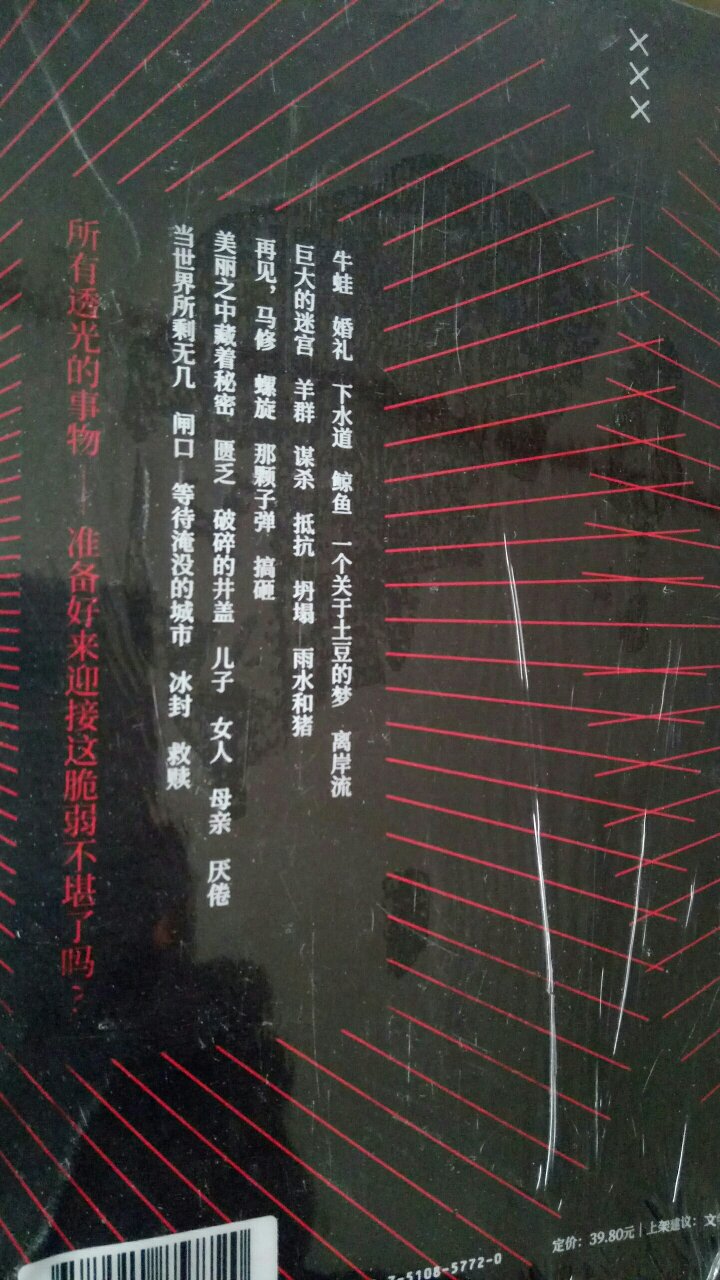 ×××
牛蛙 婚礼 下水道 鲸鱼 一个关于土豆的梦 离岸流
巨大的迷宫 羊群 谋杀 抵抗 坍塌 雨水和猪
再见，马修 螺旋 那颗子弹 搞砸
美丽之中藏着秘密 匮乏 破碎的井盖 儿子 女人 母亲 厌倦
当世界所剩无几 闸口 等待淹没的城市 冰封 救赎
所有透光的事物——准备好来迎接这脆弱不堪了吗？
7-5108-5772-0
定价：39.80元｜上架建议：文